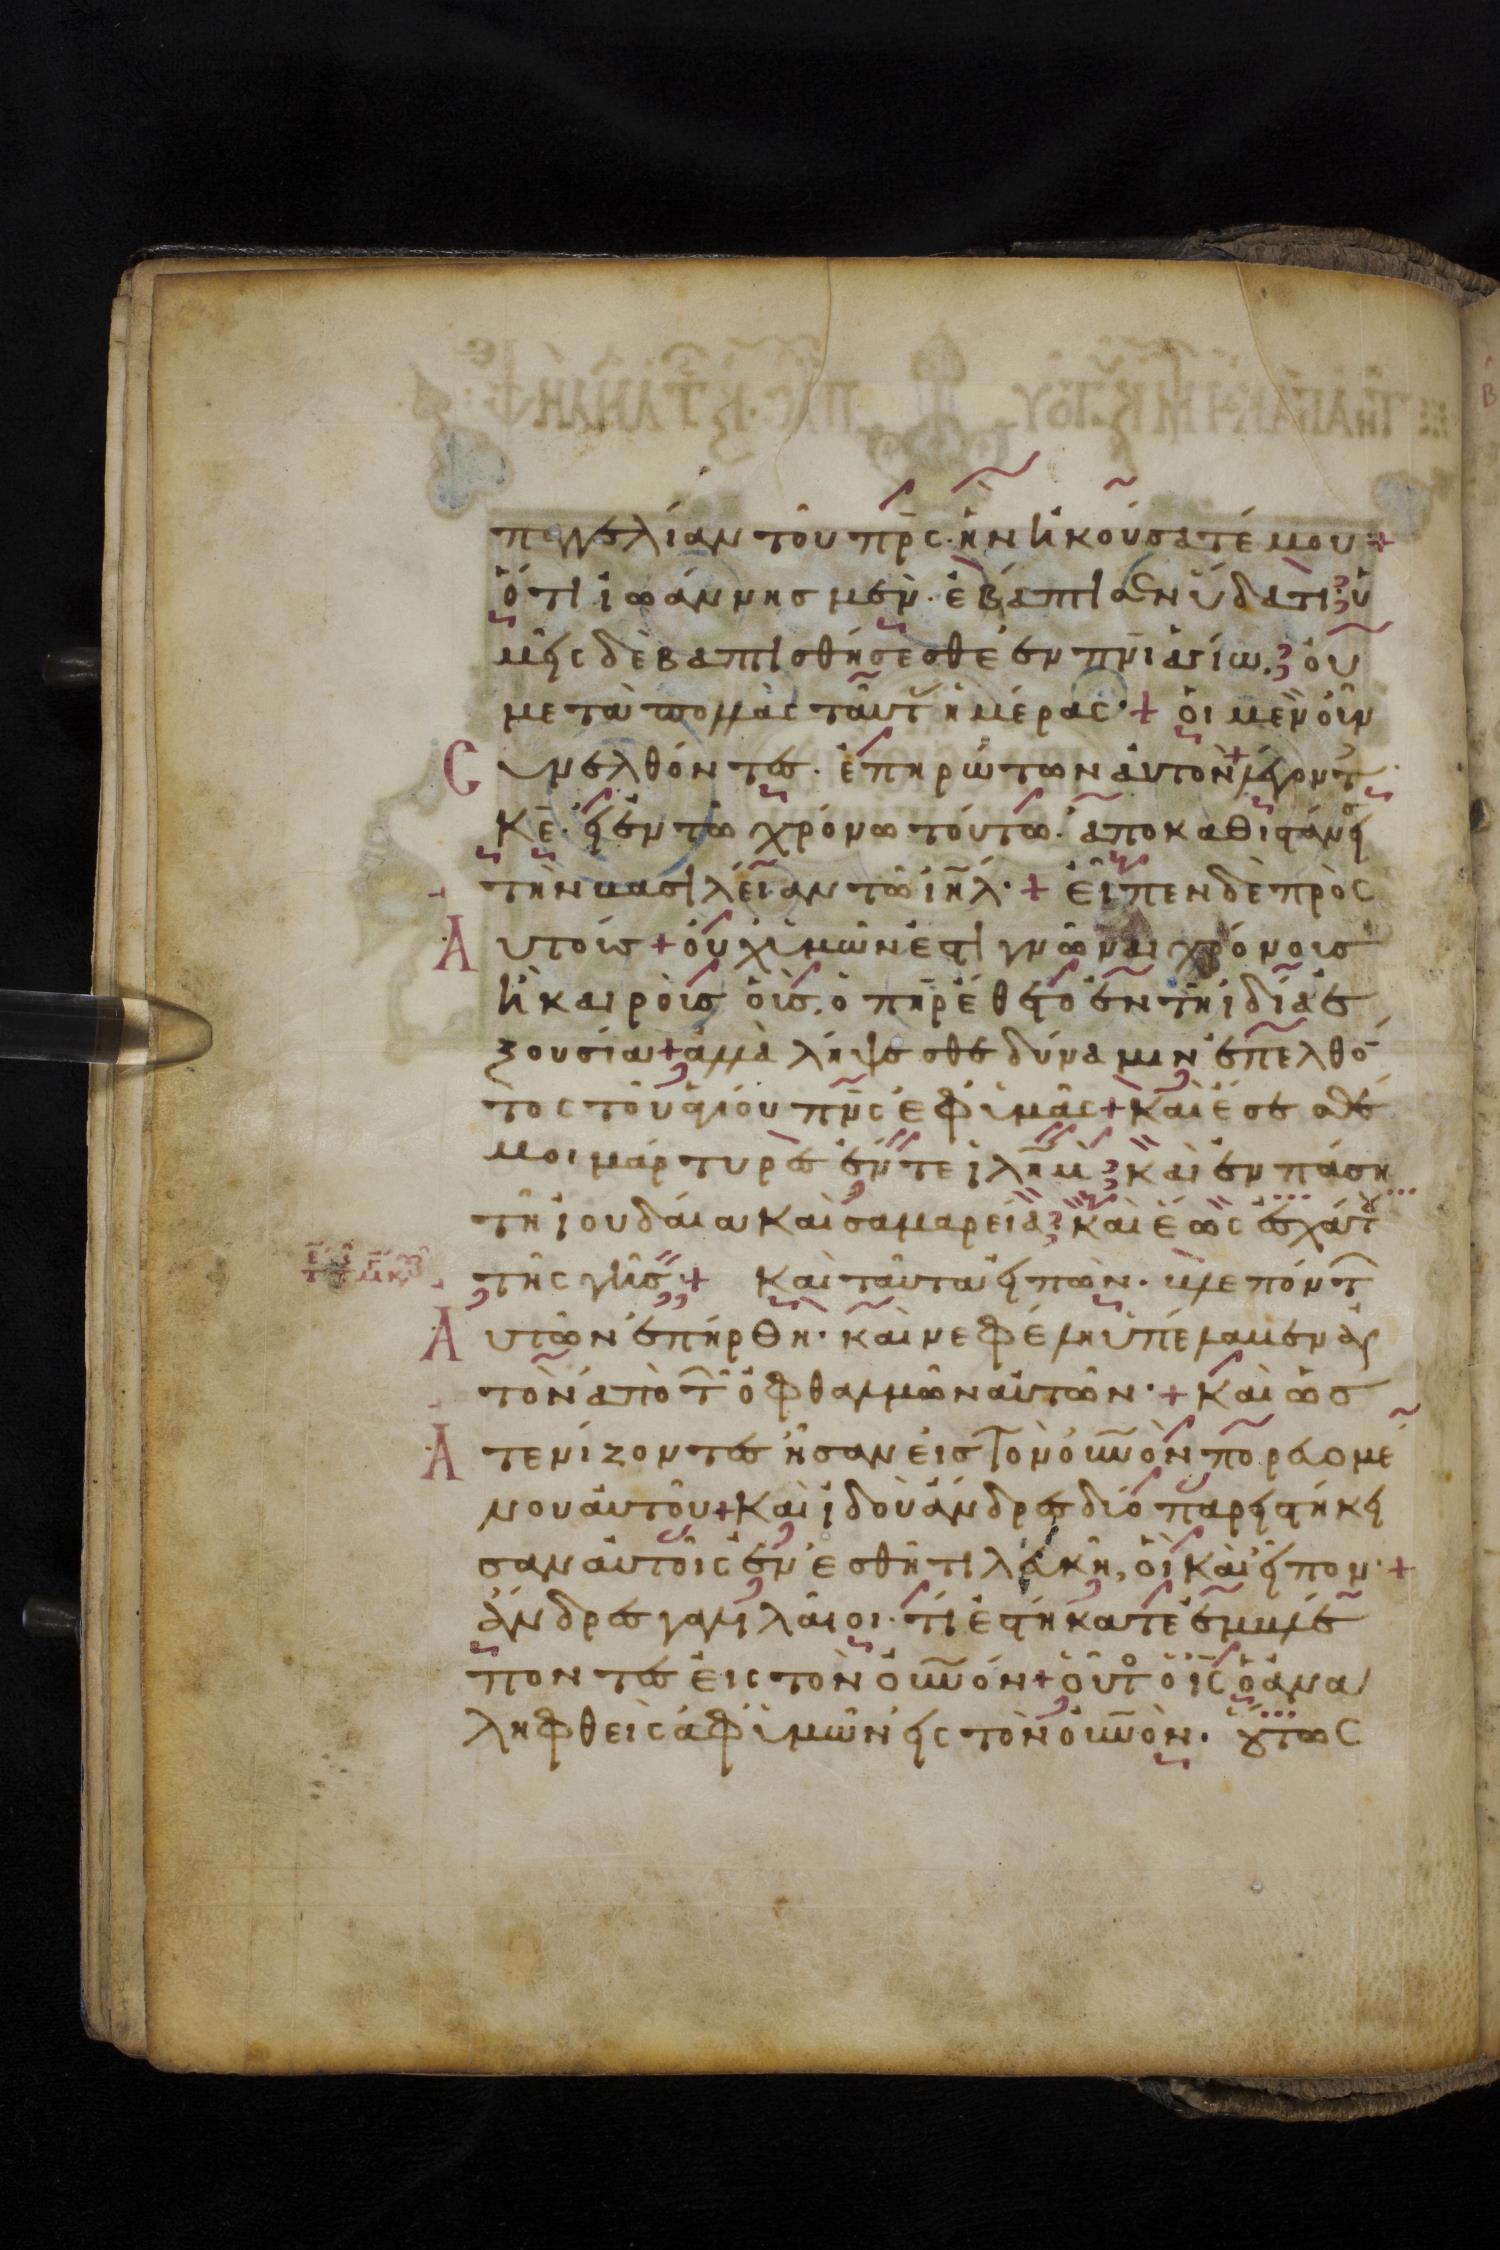 παγγελίαν τοῦ πρ̅ς· ἣν ἠκούσατέ μου +
ὅτι ἰωάννης μὲν· ἐβάπτισεν ὕδατι· ὑ
μεῖς δὲ βαπτισθήσεσθε ἐν πν̅ι ἁγίω. οὐ
μετὰ πολλὰς ταύτ ἡμέρας· + οἱ μὲν οὖν
Συνελθόντες· ἐπηρώτων αὐτὸν + λέγοντ
κ̅ε· εἰ ἐν τῶ χρόνω τούτω· ἀποκαθιστάνεις
τὴν βασιλείαν τῶ ἰη̅λ· + εἶπεν δὲ πρὸς
Αὐτοὺς + οὐχ ὑμῶν ἐστι γνῶναι χρόνους
ἢ καιροὺς οὓς ὁ πη̅ρ ἔθετο ἐν τῆ ἰδία ἐ
ξουσία + ἀλλὰ λήψεσθε δύναμιν ἐπελθό
τος τοῦ ἁγίου πν̅ς ἐφ ὑμᾶς + καὶ ἔσεσθέ
μοι μάρτυρες ἔν τε ἰλη̅μ καὶ ἐν πάση
τῆ ἰουδαία καὶ σαμαρεία καὶ ἕως ἐσχάτου
τῆς γῆς + καὶ ταῦτα εἰπὼν· βλεπόντ
Αὐτῶν ἐπήρθη· καὶ νεφέλη ὑπέλαβεν αὐ
τὸν ἀπὸ τ ὀφθαλμῶν αὐτῶν· + καὶ ὡς
Ἀτενίζοντες ἦσαν εἰς τὸν οὐ̅νὸν πορευομέ
νου αὐτοῦ + καὶ ἰδοὺ ἄνδρες δύο παρειστήκει
σαν αὐτοῖς ἐν ἐσθῆτι λευκῆ, οἳ καὶ εἶπον· +
ἄνδρες γαλιλαῖοι· τί ἑστήκατε ἐμβλέ
ποντες εἰς τὸν οὐ̅νόν + οὗτο ὁ ἰ̅ς ὁ ἀνα
ληφθεὶς ἀφ ὑμῶν εἰς τὸν οὐ̅νὸν. οὕτως